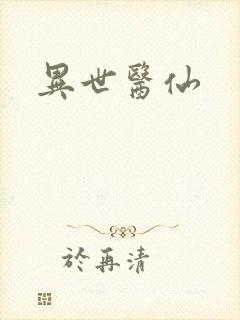 異世醫仙
於再清